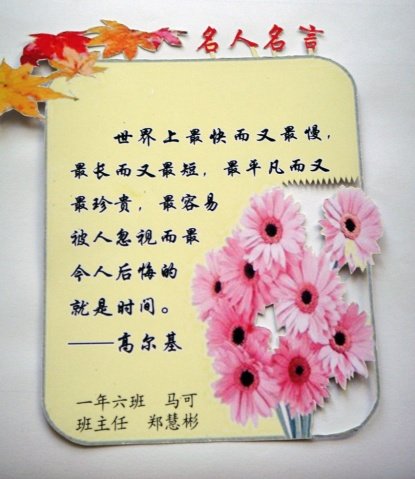 名人名言
世界上最快而又最慢，
最长而又最短，最平凡而又
最珍贵，最容易
被人忽视而最
令人后悔的
就是时间。
——高尔基
一年六班 马可
班主任 郑慧彬